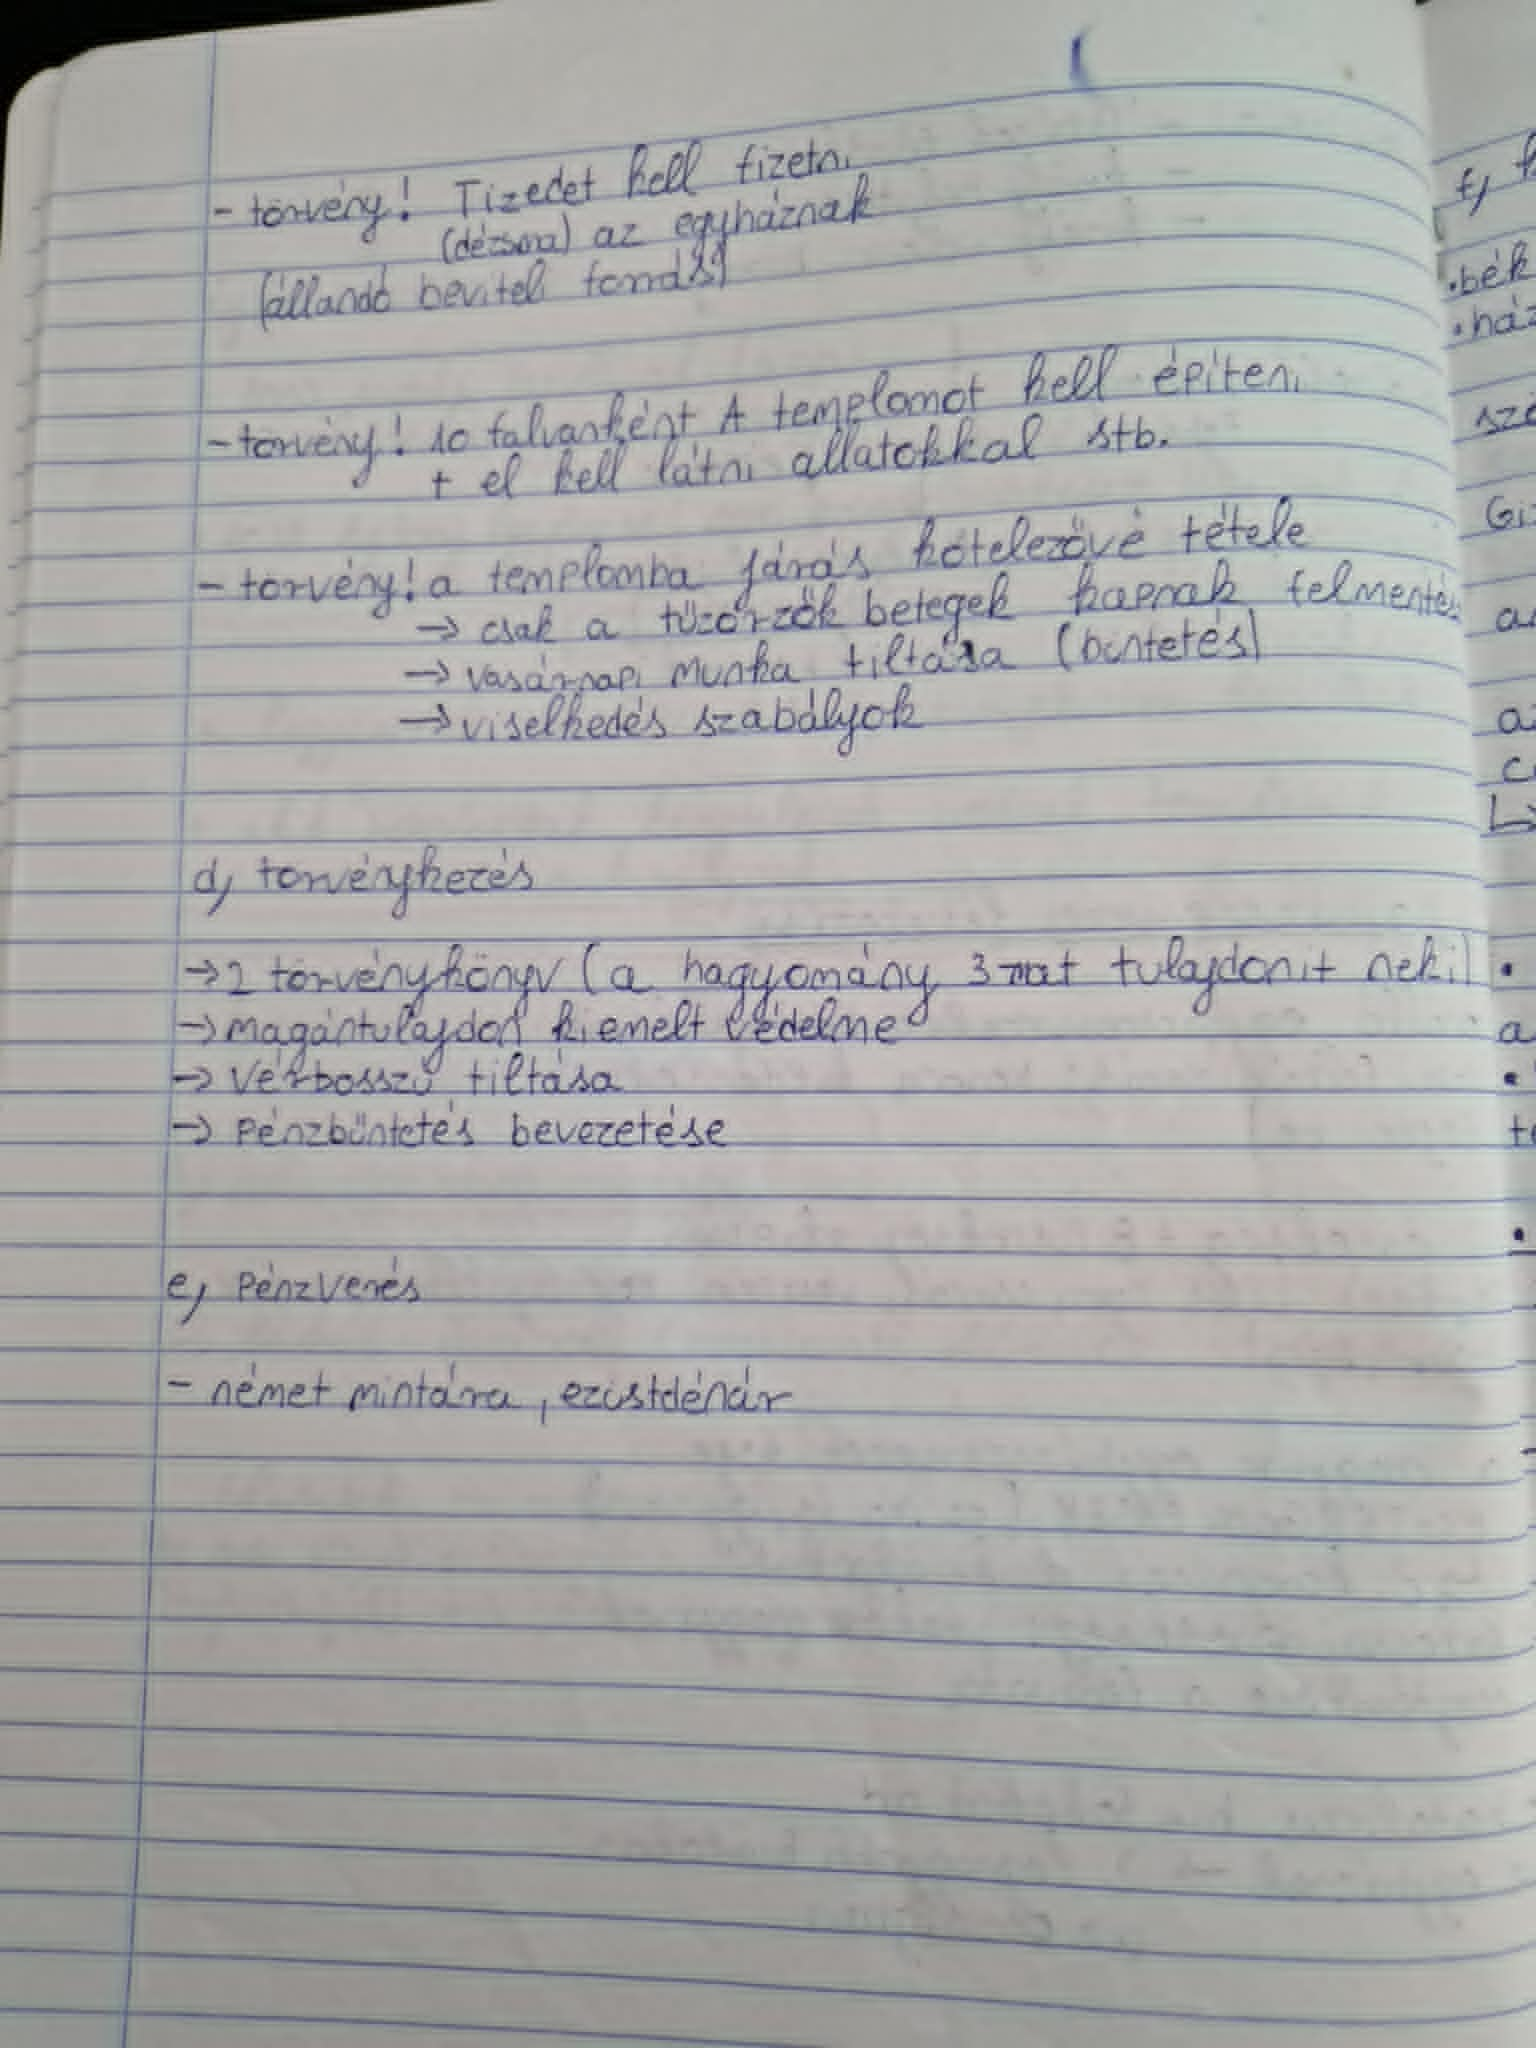 - törvény! Tizedet kell fizetni
(dézsma) az egyháznak
(állandó beviteli forrás)
- törvény! 10 falvanként 1 templomot kell építeni
+ el kell látni állatokkal stb.
- törvény! a templomba járás kötelezővé tétele
→ csak a tűzőrzők betegek kapnak felmentés
→ vasárnapi munka tiltása (büntetés)
→ viselkedés szabályok
d, törvénykezés
→ 2 törvénykönyv (a hagyomány 3mat tulajdonit neki)
→ magántulajdon kiemelt védelme
→ Vérbosszú tiltása
→ Pénzbüntetés bevezetése
e, Pénzverés
- német mintára, ezüstdénár
f,
.bék
.ház